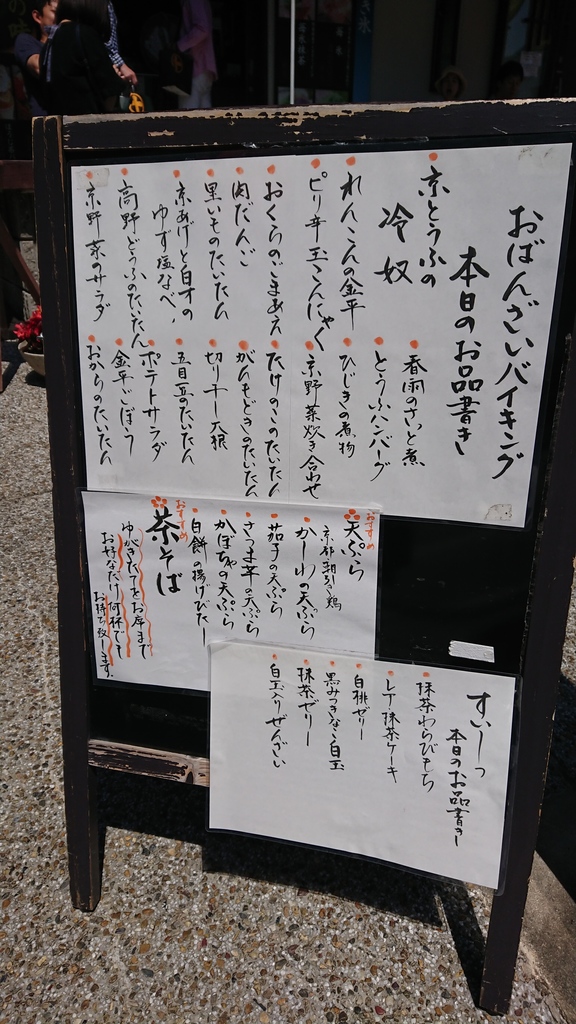 おばんざいバイキング
本日のお品書き
京とうふの
冷奴
れんこんの金平
ピリ辛玉こんにゃく
おくらのごまあえ
肉だんご
里いものたいたん
京あげと白才の
ゆず塩なべ
高野どうふのたいたん
京野菜のサラダ
春雨のさっと煮
とうふハンバーグ
ひじきの煮物
京野菜炊き合わせ
たけのこのたいたん
がんもどきのたいたん
切り干し大根
五目豆のたいたん
ポテトサラダ
金平ごぼう
おからのたいたん
おすすめ
天ぷら
京都朝引き鶏
かしわの天ぷら
茄子の天ぷら
さつま芋の天ぷら
かぼちゃの天ぷら
白餅の揚げびたし
おすすめ
茶そば
ゆがきたてをお席まで
お好なだけ何杯でも
お持ち致します。
すいーつ
本日のお品書き
抹茶わらびもち
レアー抹茶ケーキ
白桃ゼリー
黒みつきなこ白玉
抹茶ゼリー
白玉入りぜんざい